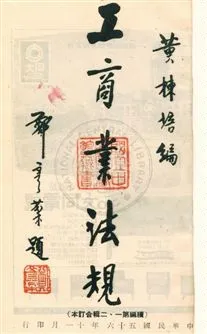 黃棟培編
工商業法規
鄭彥棻題
續編第一、二輯合訂本)
中華民國五十六年十一月印行